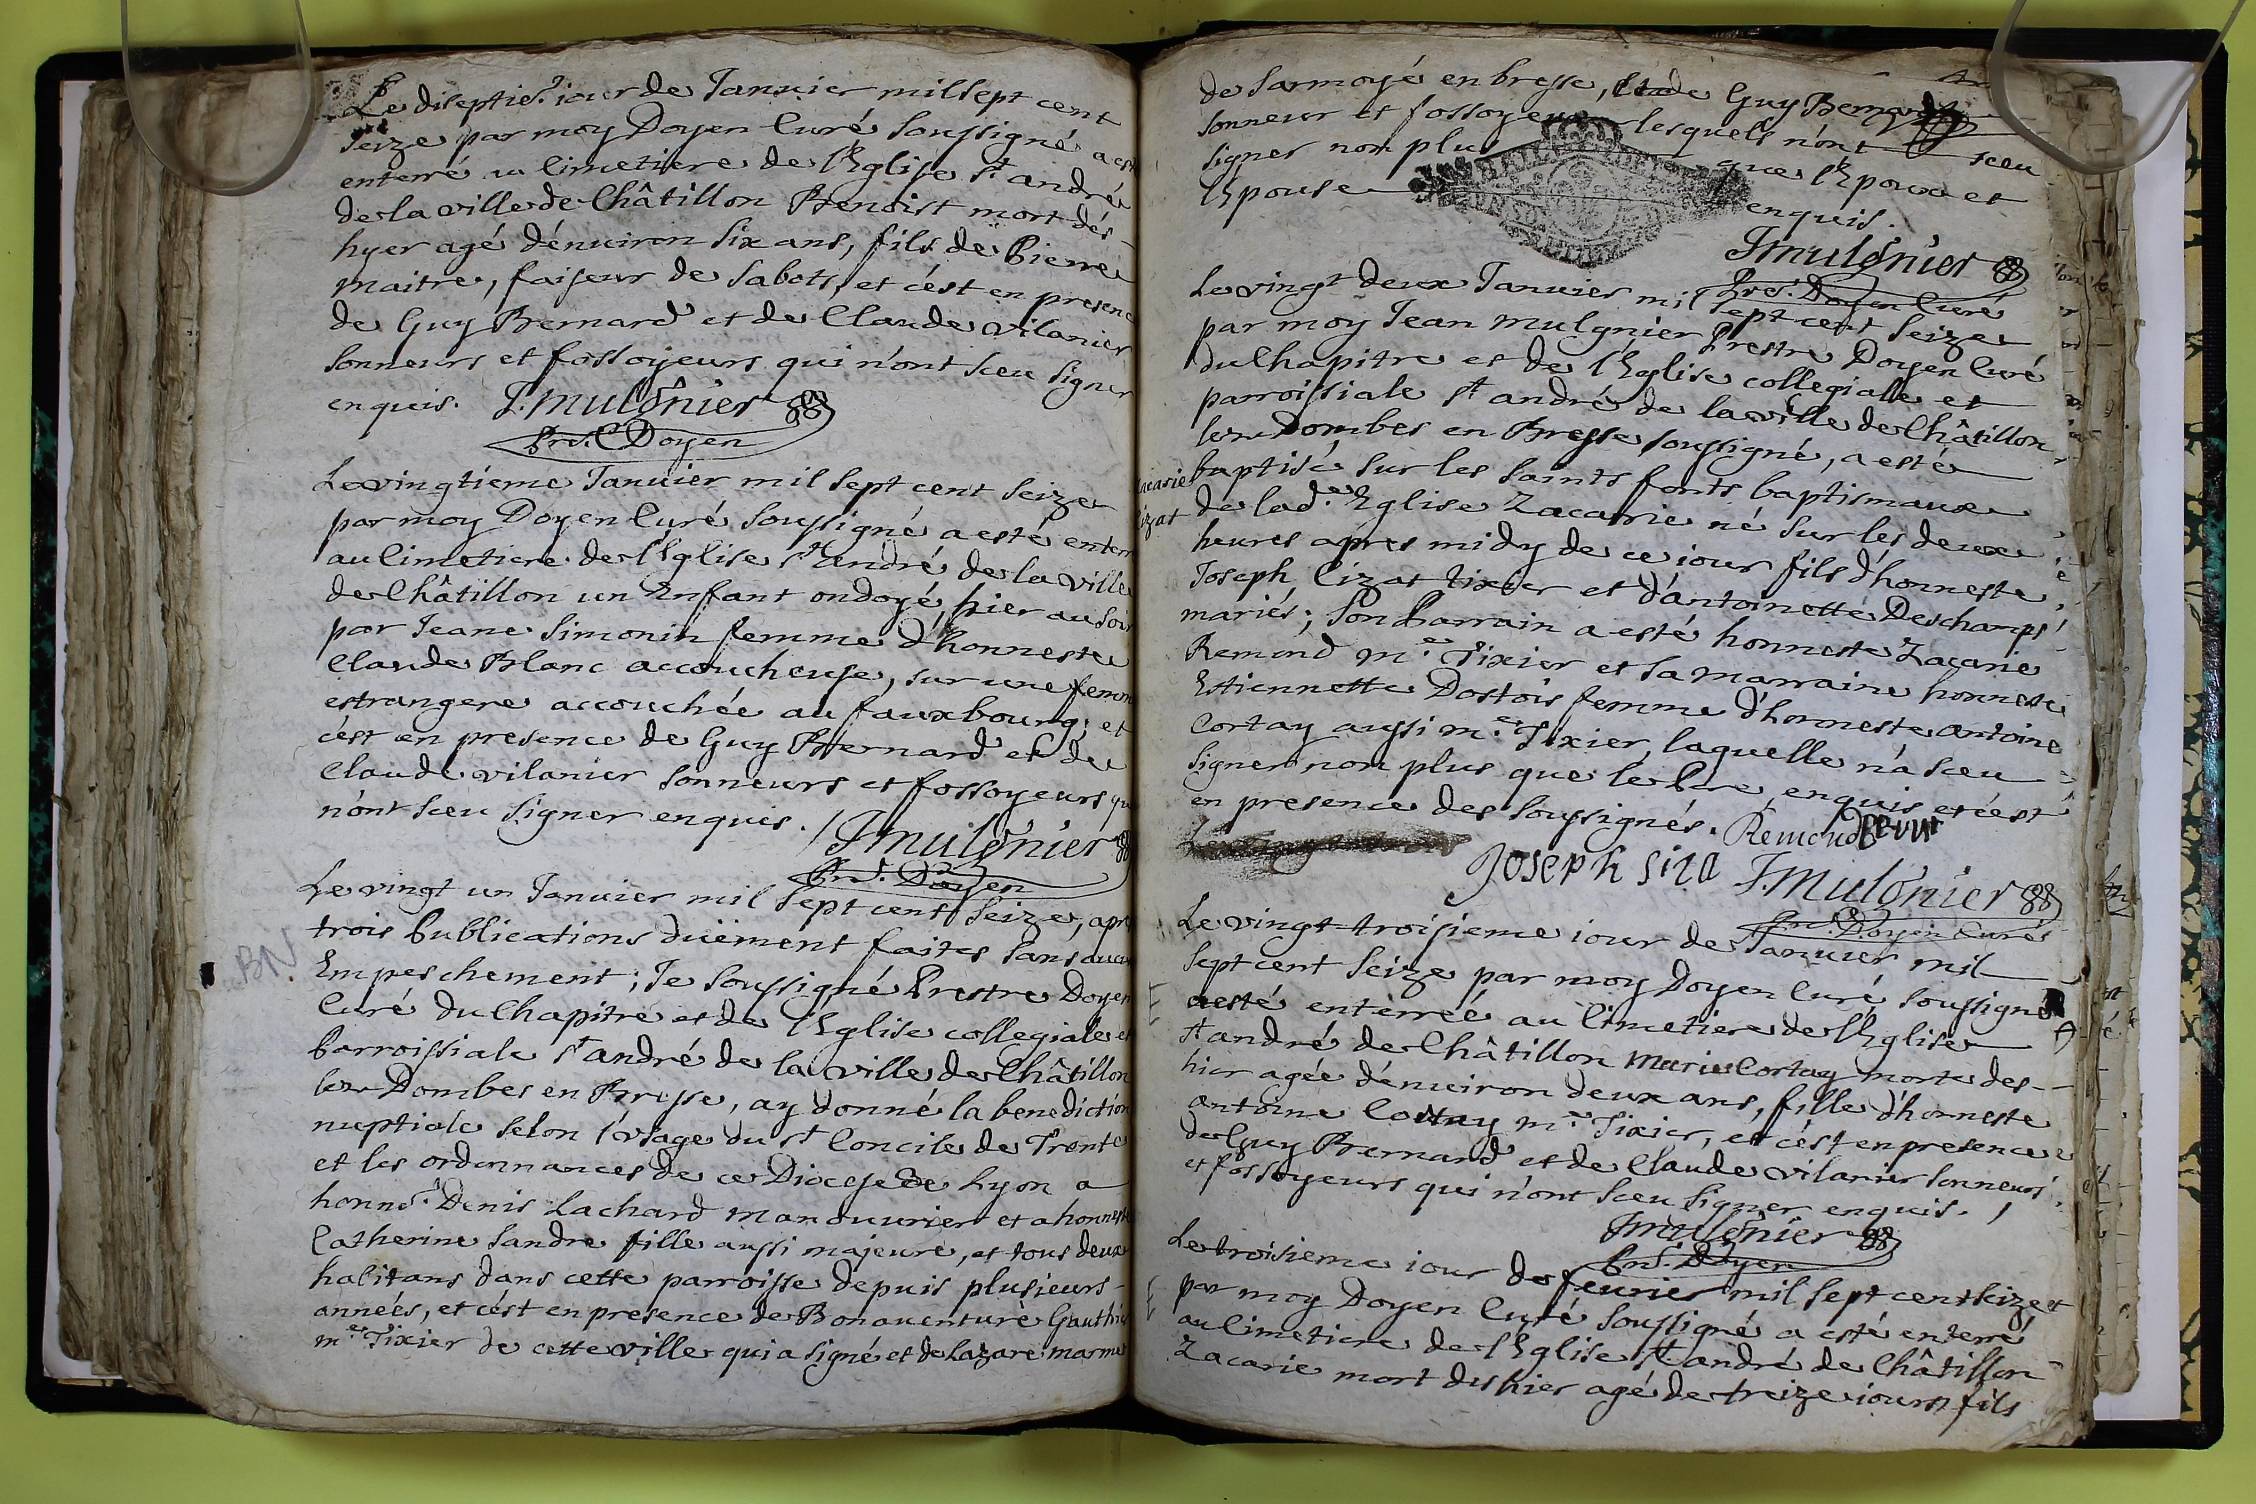 Le diseptie.e iour de Ianuier mil sept cent
seize par moy Doyen Curé soussigné a est
enterré au Cimetiere de l'Eglise st andré
de la ville de Châtillon Benoist mort dés-
hyer agé dénuiron six ans, fils de Pierre
maitre, faiseur de sabots, et cést en presenc
de Guy Bernard et de Claude vilanier
sonneurs et fossoyeurs qui n'ont sceu signer
enquis. J. Mulônier
Pre. Doyen
Le vingtieme Ianuier mil sept cent seize
par moy Doyen Curé soussigné a esté enterr
au Cimetiere de l'Eglise st andré de la ville
de Châtillon un Enfant ondoyé, hier au soir
par Jeane Simonin femme d'honneste
Claude Blanc accoucheuse, sur une femm
estrangere accouchée au fauxbourg; et
cést en presence de Guy Bernard et de
Claude vilanier sonneurs et fossoyeurs qu
n'ont sceu signer enquis. / J Mulônier
Pre. Doyen
Le vingt un Ianuier mil sept cent seize, apre
trois Publications düëment faites sans aucu
Empeschement; Je soussigné Prestre Doyen
BN
Curé du Chapitre et de l'Eglise collegiale et
Parroissiale st andré de la ville de Châtillon
lez Dombes en Bresse, ay donné la benediction
nuptiale selon l'vsage du st Concile de Trente
et les ordonnances de ce Diocese de Lyon a
honne.e Denis Lachard manouurier et a honneste
Catherine Sandre fille aussi majeure, et tous deux
habitans dans cette parroisse depuis plusieurs-
années, et cést en presence de Bonauenture Gauthie
m.e Tixier de cette ville qui a signé et de Lazare marme
de Sarmoyé en bresse, et de Guy Bernard
sonneur et fossoyeur lesquels n'ont sceu
signer non plus que l'Epoux et
l'Epouse enquis.
J Mulônier
Pre. Doyen Curé
Le vingt deux Ianuier mil sept cent seize
par moy Jean Mulgnier Prestre Doyen Curé
du Chapitre et de l'Eglise collegialle et
parroissiale st andré de la ville de Châtillon
lez Dombes en Bresse soussigné, a esté
acarie
baptisé sur les saints fonts baptismaux
izat
de lad.e Eglise Zacarie né sur les deux
heures apres midy de ce iour fils d'honneste
Joseph Cizat Tixier et d'antoinette Deschamps
mariés; son Parrain a esté honneste Zacarie
Remond m.e Tixier et sa marraine honneste
Estiennette Dostois femme d'honneste Antoine
Cortay aussi m.e Tixier, laquelle n'a sceu
signer non plus que le Pere, enquis et cést
en presence des soussignés. Remond
Joseph siza J. Mulônier
Pre. Doyen Curé
Le vingt troisieme iour de Ianuier mil
sept cent seize par moy Doyen Curé soussigné
a esté enterréé au Cimetiere de l'Eglise
st andré de Châtillon Marie Cortay morte des-
hier agée dénuiron deux ans, fille d'honneste
Antoine Cortay m.e Tixier, et cést en presence
de Guy Bernard et de Claude vilanier sonneurs
et fossoyeurs qui n'ont sceu signer enquis.
J Mulônier
Pre. Doyen
Le troisieme iour de feurier mil sept cent seize
par moy Doyen Curé soussigné a esté enterré
au Cimetiere de l'Eglise st andré de Châtillon
Zacarie mort des hier agé de treize iours, fils